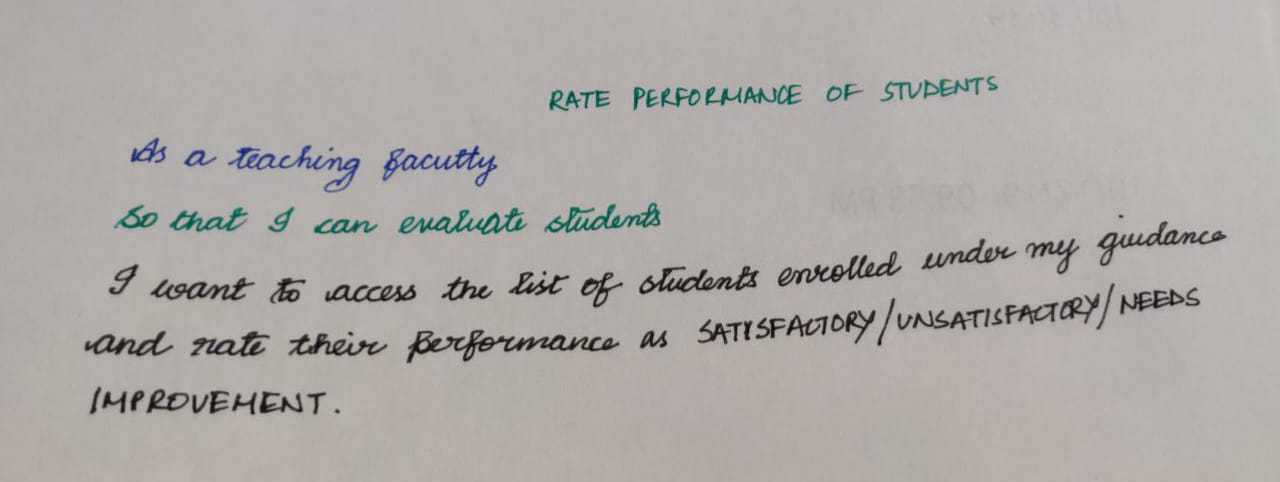 RATE PERFORMANCE OF STUDENTS
As a teaching faculty
So that I can evaluate students
I want to access the list of students enrolled under my guidance
and rate their performance as SATISFACTORY/UNSATISFACTORY/NEEDS
IMPROVEMENT.